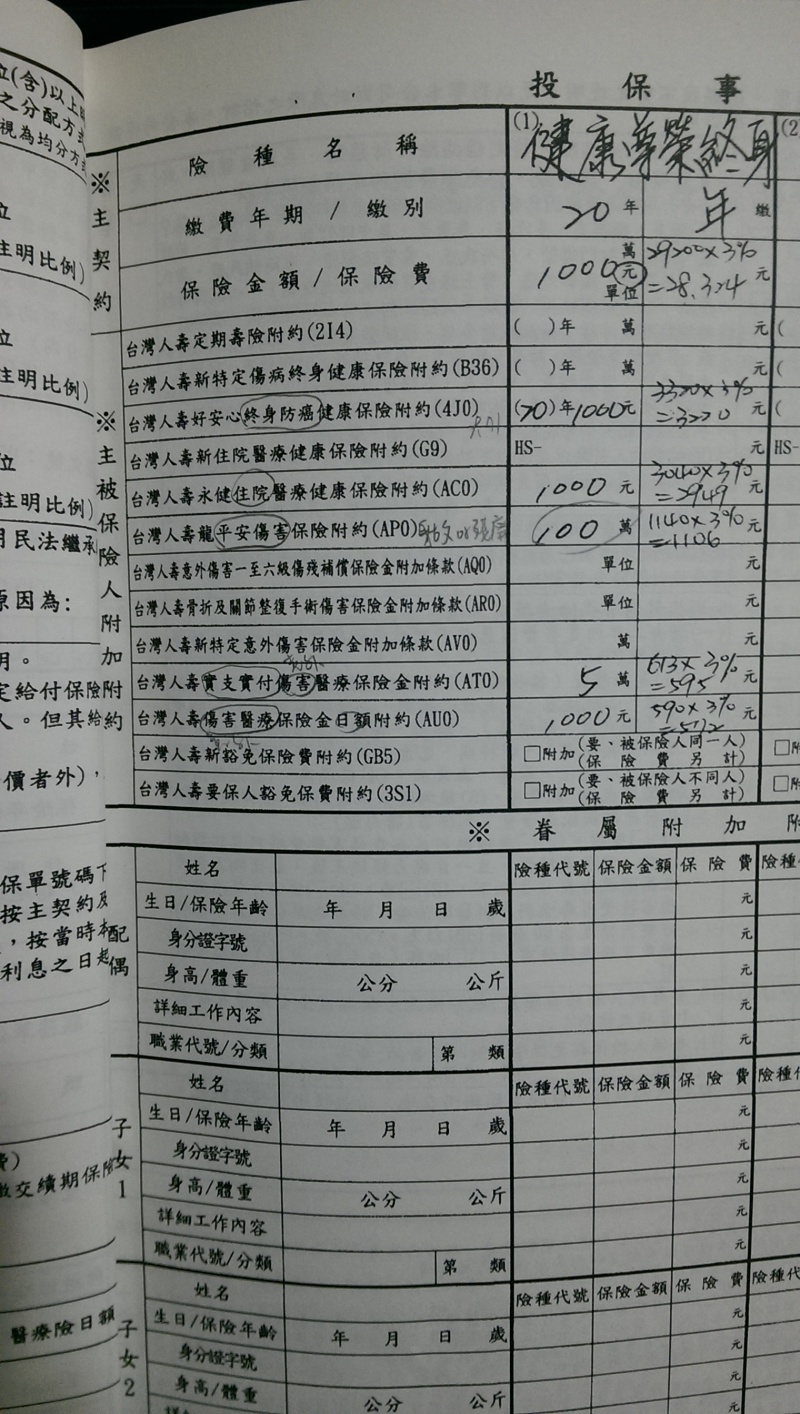 位(含)以上時
之分配方式
視為均分方式
位
註明比例)
位
註明比例)
位
註明比例)
民法繼承
原因為:
明。
定給付保險
人。但其給
價者外),
保單號碼下
按主契約及
,按當時本
利息之日起
費)
繳交續期保險
醫療險日額
投保事
※主契約
險種名稱 (1) 健康尊榮終身 (2
繳費年期/繳別 20年 年 繳
保險金額/保險費 1000 萬 元 單位 29200×3% =28,324 元
※主被保險人附加附約
台灣人壽定期壽險附約(2I4) ( )年 萬 元 (
台灣人壽新特定傷病終身健康保險附約(B36) ( )年 萬 元 (
台灣人壽好安心終身防癌健康保險附約(4J0) (20)年1000元 3320×3% =3220 元 (
台灣人壽新住院醫療健康保險附約(G9) HS- 元 HS-
台灣人壽永健住院醫療健康保險附約(AC0) 1000 元 3040×3% =2949 元
台灣人壽龍平安傷害保險附約(AP0) 100 萬 1140×3% =1106 元
台灣人壽意外傷害一至六級傷殘補償保險金附加條款(AQ0) 單位 元
台灣人壽骨折及關節整復手術傷害保險金附加條款(AR0) 單位 元
台灣人壽新特定意外傷害保險金附加條款(AV0) 萬 元
台灣人壽實支實付傷害醫療保險金附約(AT0) 5 萬 613×3% =595 元
台灣人壽傷害醫療保險金日額附約(AU0) 1000 元 590×3% =572 元
台灣人壽新豁免保險費附約(GB5) □附加(要、被保險人同一人)(保險費另計) □附
台灣人壽要保人豁免保費附約(3S1) □附加(要、被保險人不同人)(保險費另計) □附
※眷屬附加附
配偶
姓名 險種代號 保險金額 保險費 險種
生日/保險年齡 年 月 日 歲 元
身分證字號 元
身高/體重 公分 公斤 元
詳細工作內容 元
職業代號/分類 第 類 元
子女1
姓名 險種代號 保險金額 保險費 險種代
生日/保險年齡 年 月 日 歲 元
身分證字號 元
身高/體重 公分 公斤 元
詳細工作內容 元
職業代號/分類 第 類 元
子女2
姓名 險種代號 保險金額 保險費 險種代
生日/保險年齡 年 月 日 歲 元
身分證字號 元
身高/體重 公分 公斤 元